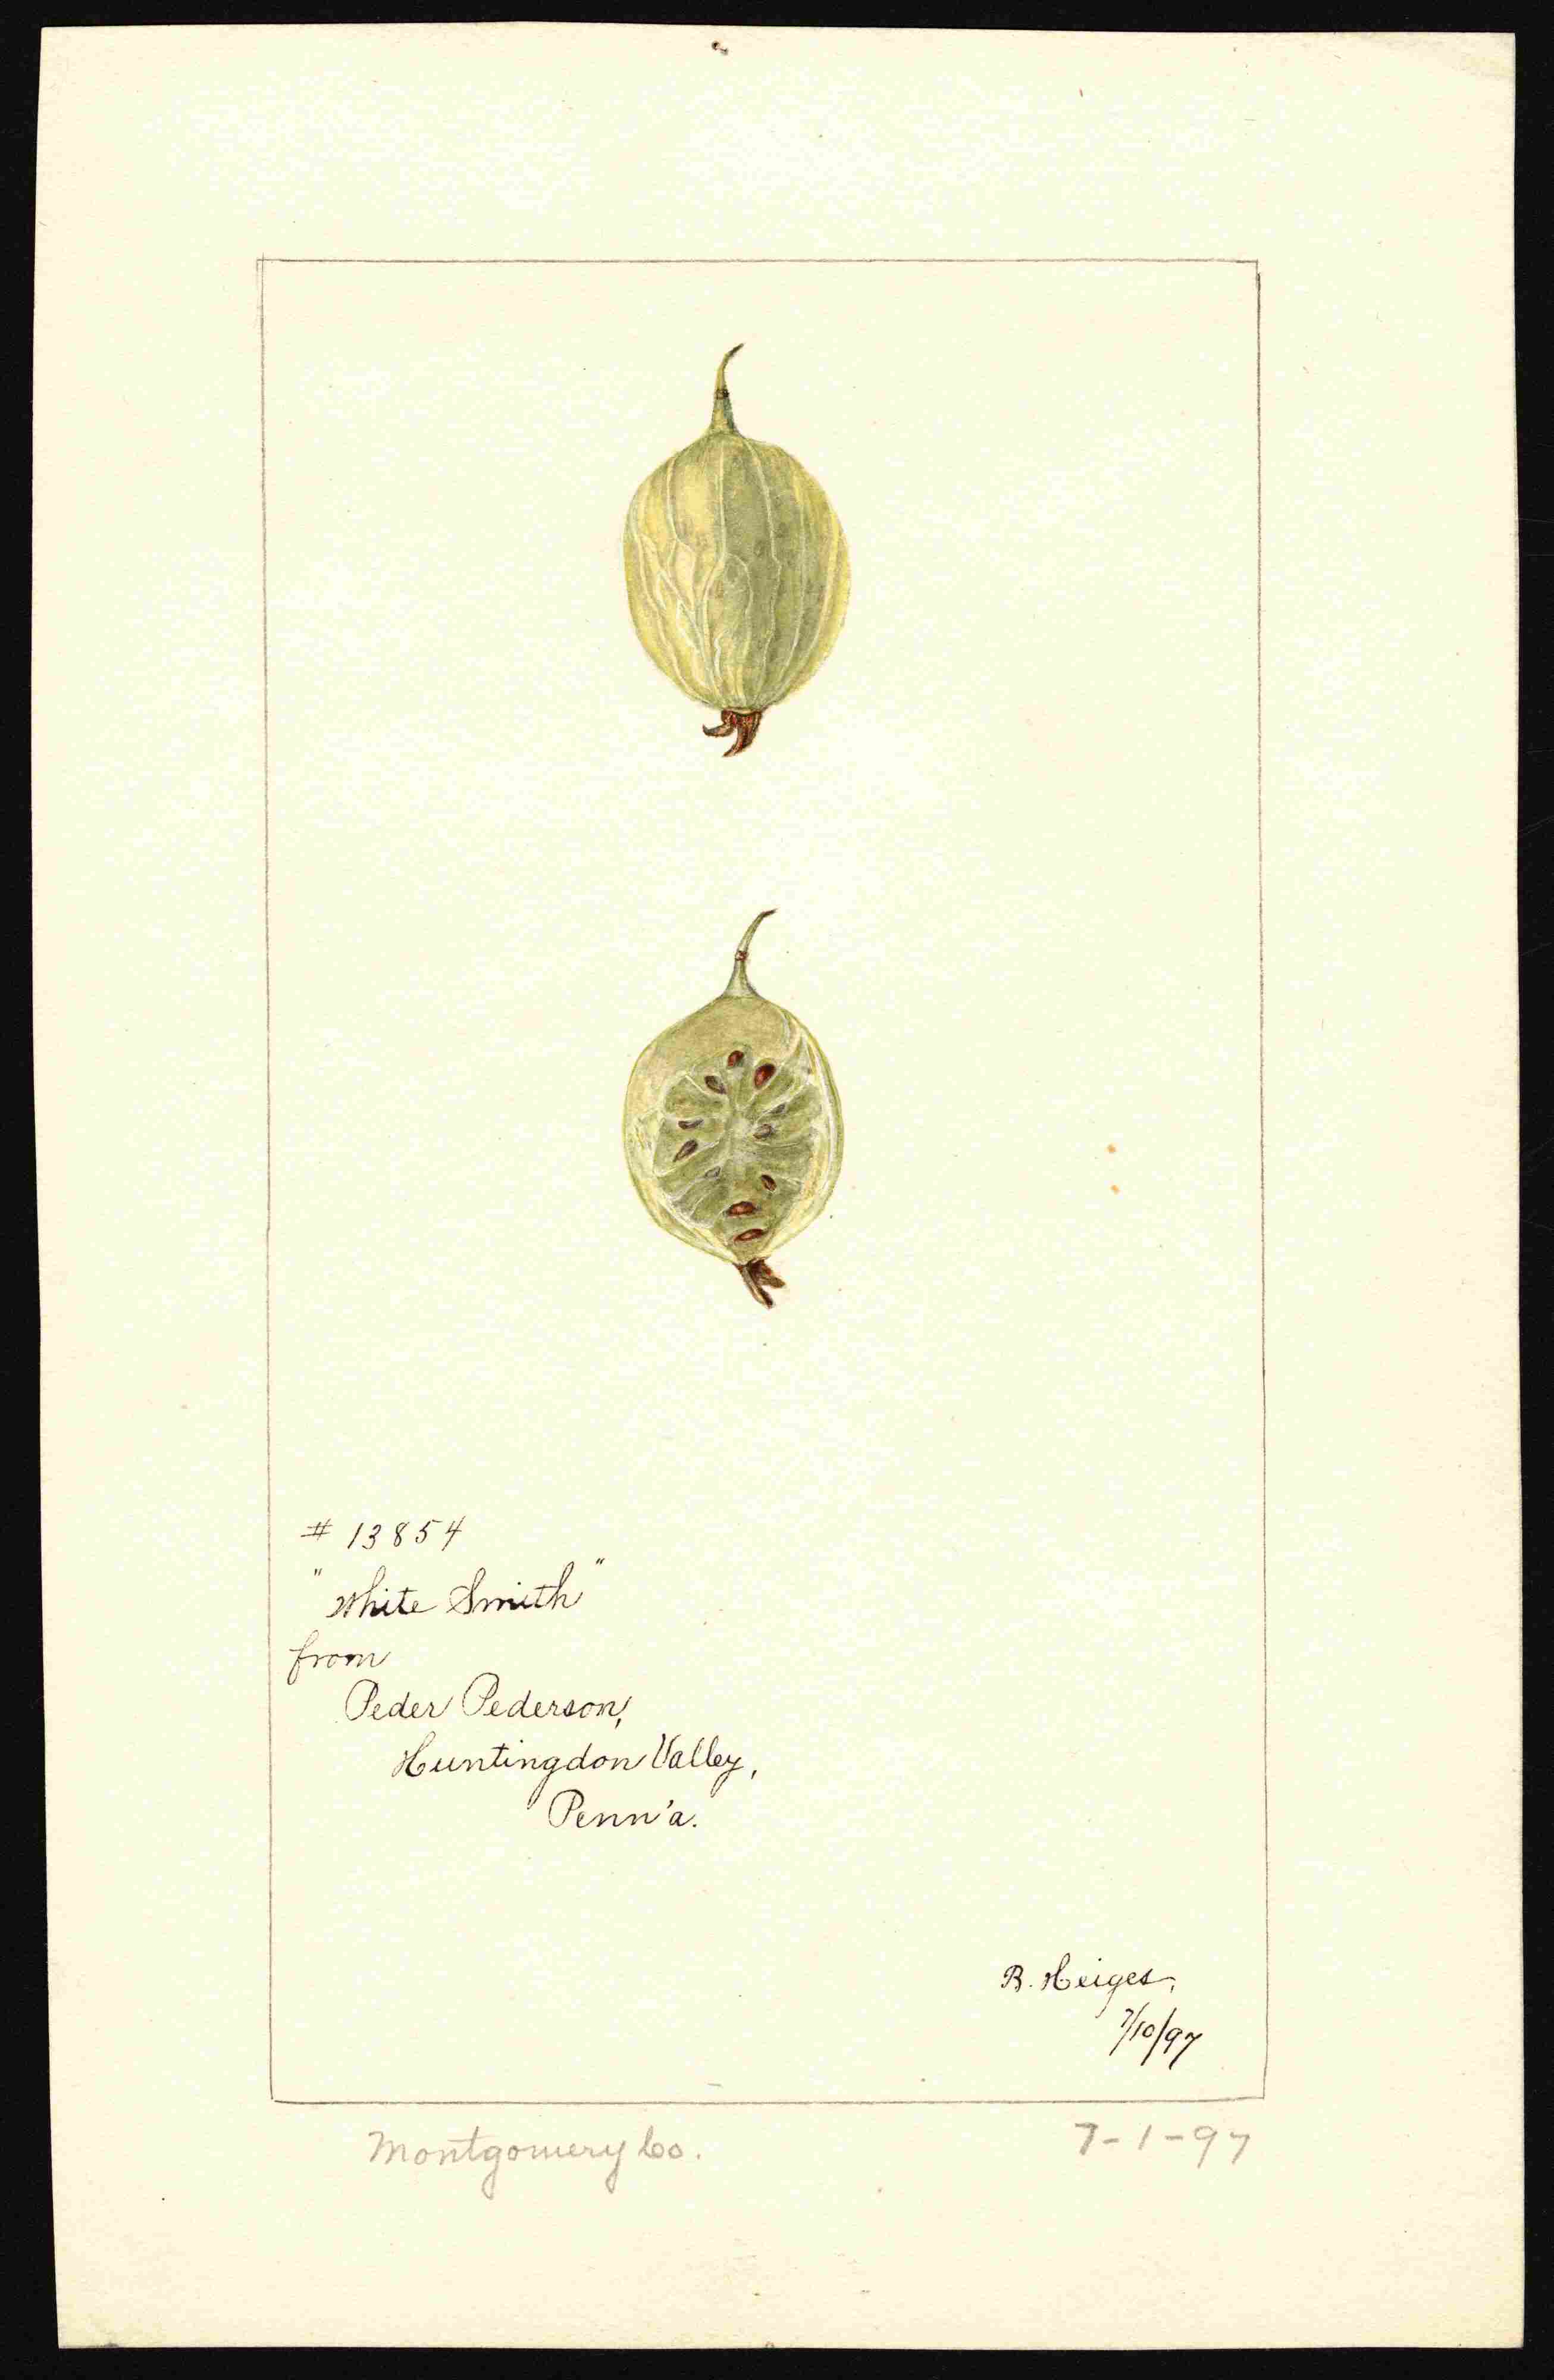 # 13854
"White Smith"
from
Peder Pederson,
Huntingdon Valley,
Penn'a.
B. Heiges,
7/10/97
Montgomery Co.
7-1-97